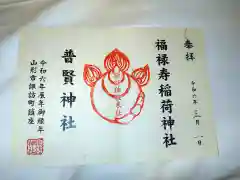 奉拝
令和六年 三月 一日
福禄寿稲荷神社
普賢神社
令和六年辰年御縁年
山形市諏訪町鎮座